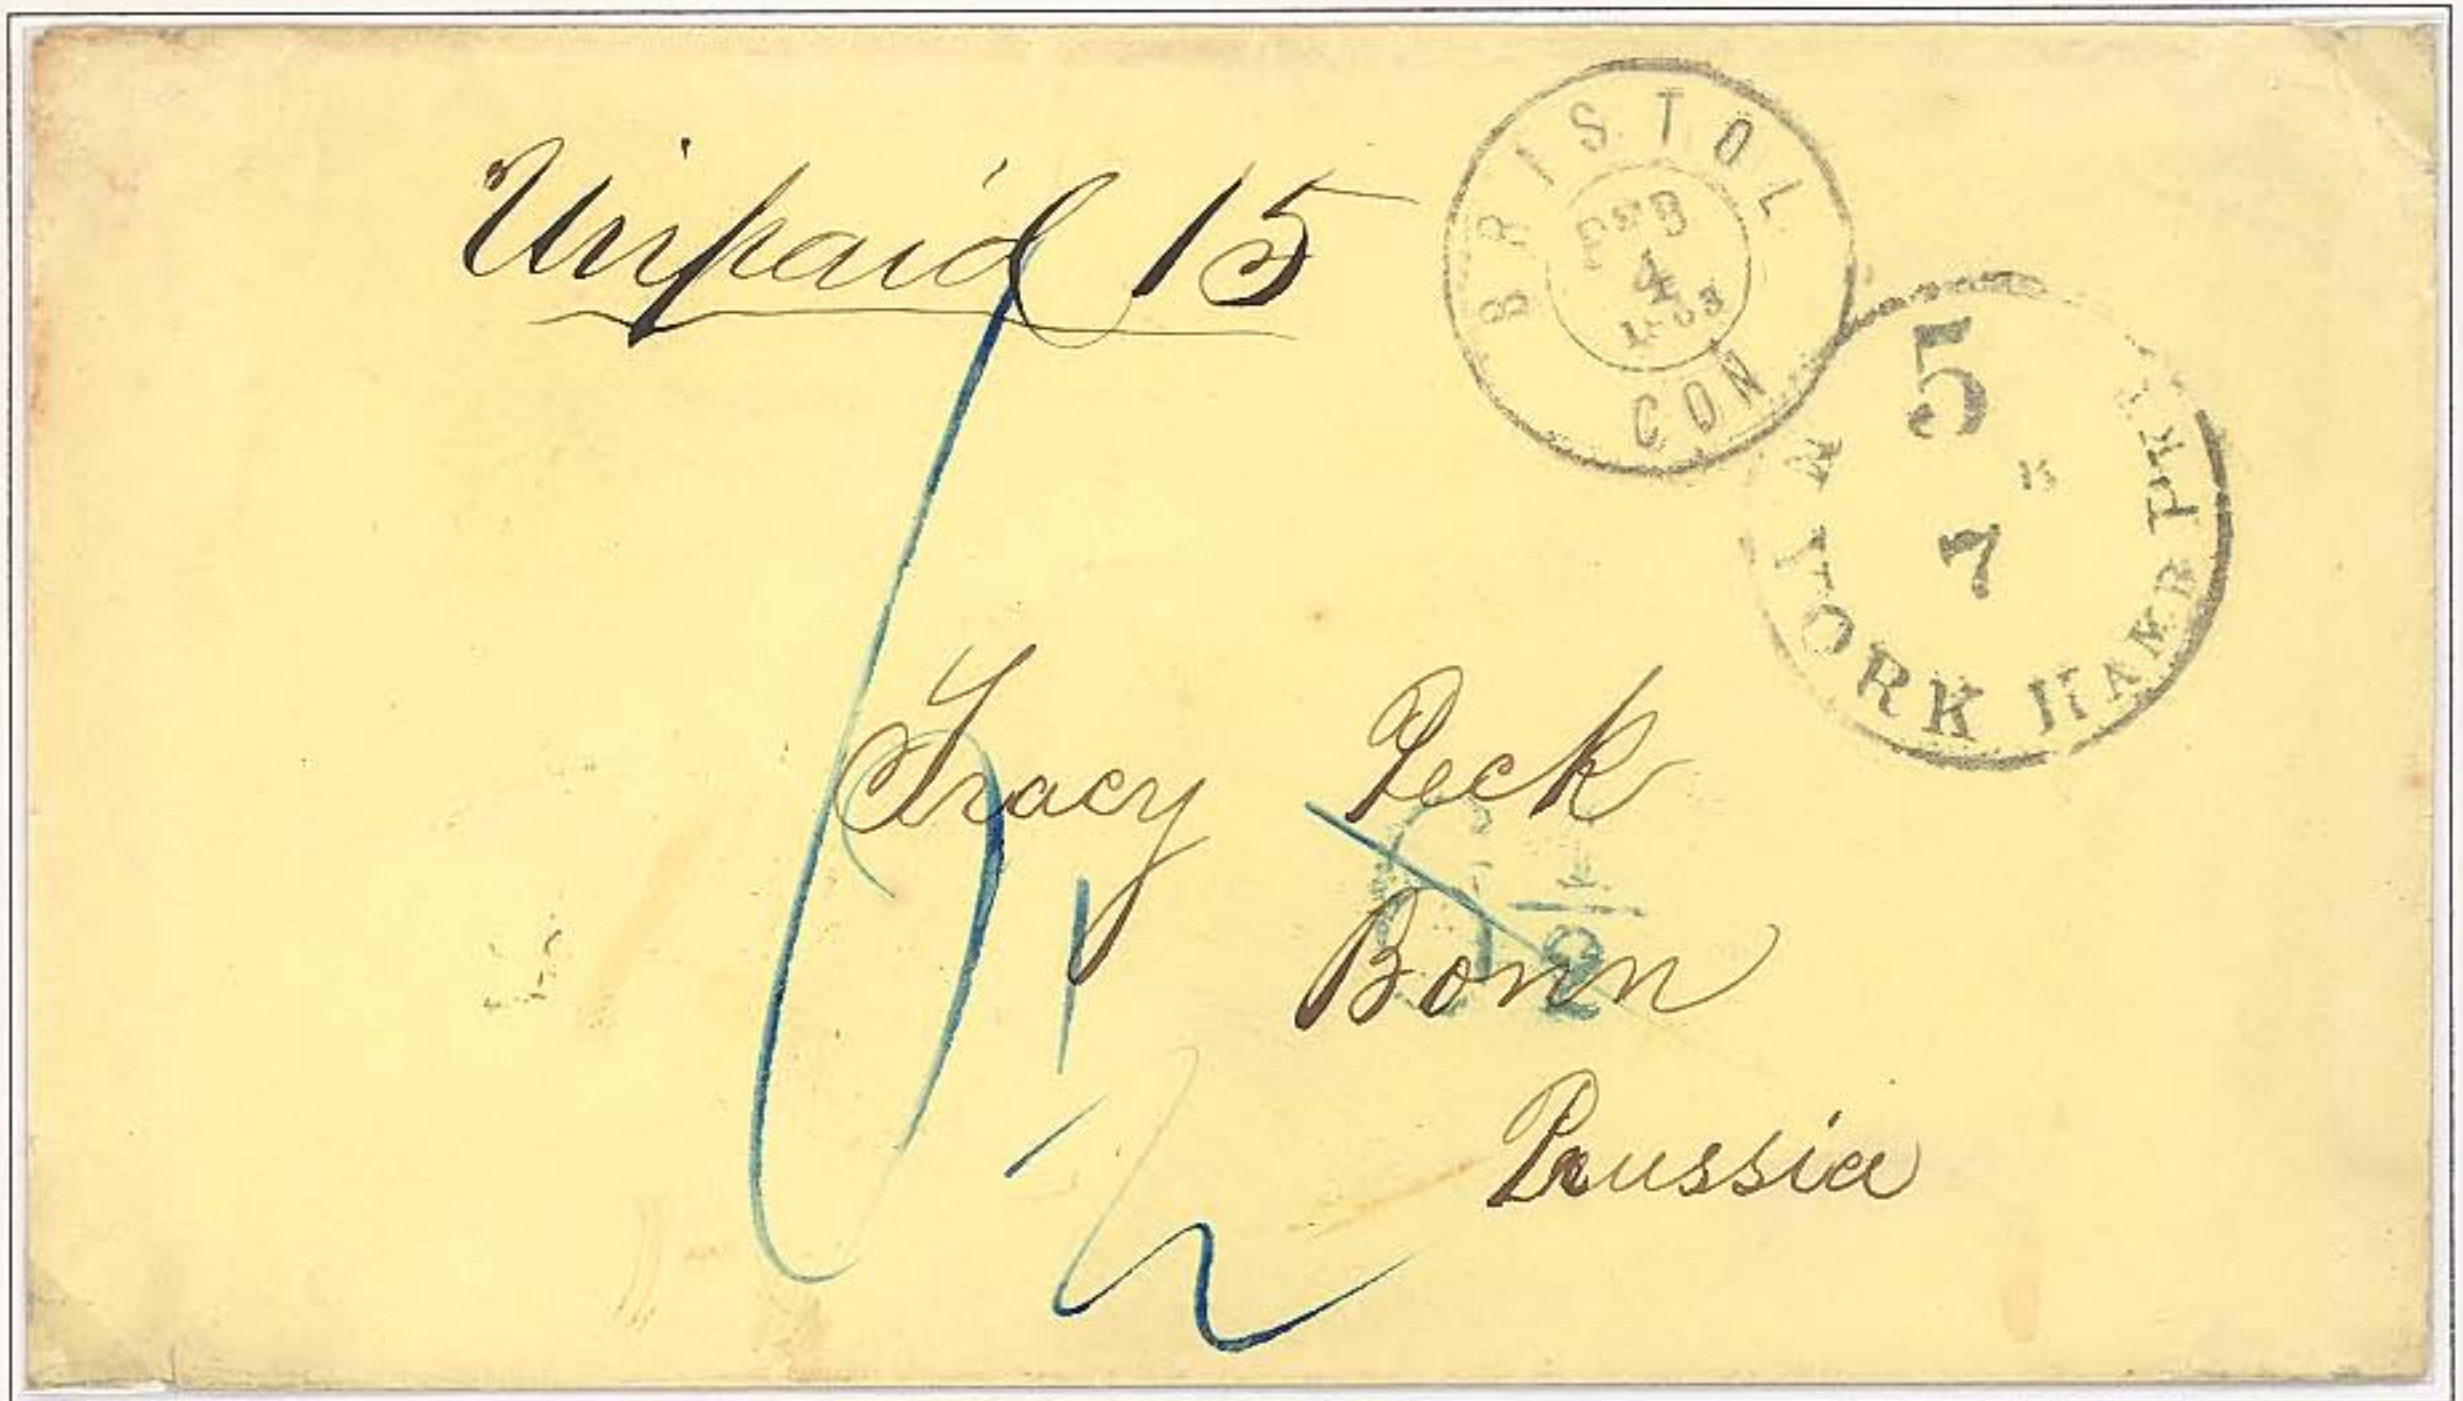 Unpaid 15
BRISTOL
4
CON
5
7
YORK HAMB PKT
Tracy Peck
Bonn
Prussia
6 1/2